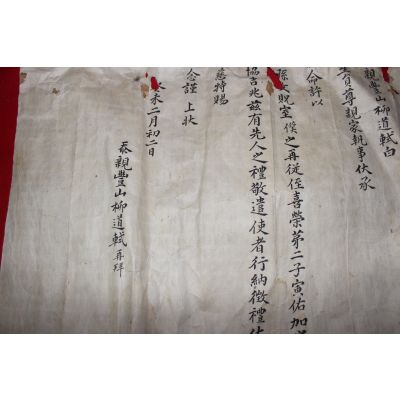 親豊山柳道軾白
尊親家執事伏承
命許以
貺室僕之再從侄喜榮第二子寅佑加
協吉兆茲有先人之禮敬遣使者行納徵禮伏
慈特賜
念謹上狀
未二月初二日
忝親豊山柳道軾再拜